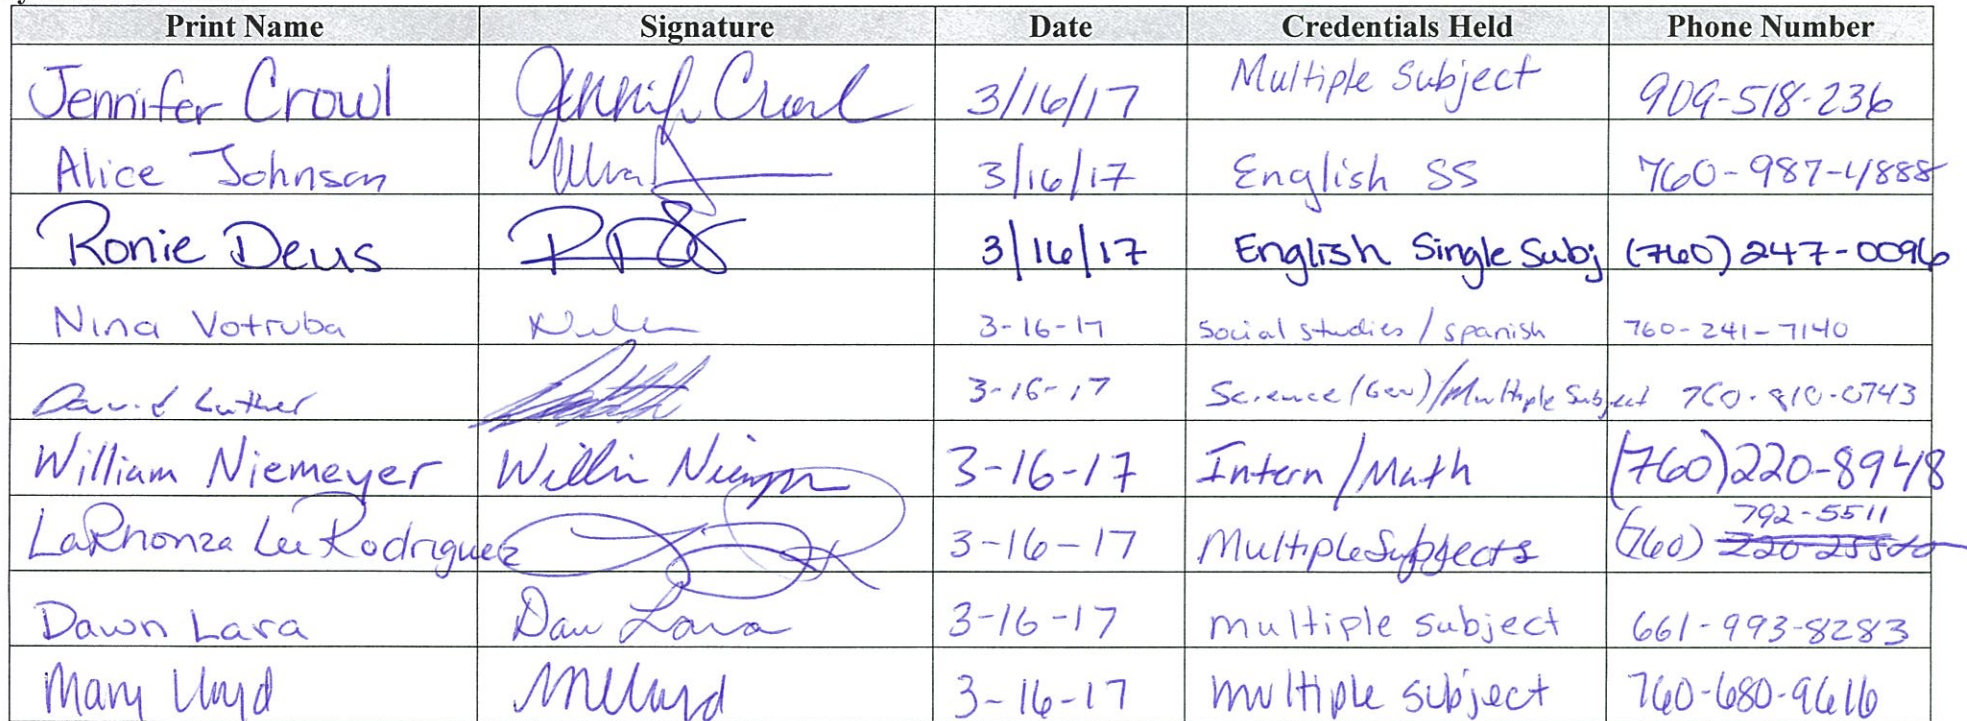 Print Name Signature Date Credentials Held Phone Number
Jennifer Crowl Jennif Crowl 3/16/17 Multiple Subject 909-518-236
Alice Johnson 3/16/17 English SS 760-987-4888
Ronie Deus 3/16/17 English Single Subj (760) 247-0096
Nina Votruba 3-16-17 Social studies / spanish 760-241-7140
David Luther 3-16-17 Science (Geo)/Multiple Subject 760-810-0743
William Niemeyer 3-16-17 Intern/Math (760)220-8948
LaRhonza Lee Rodriguez 3-16-17 Multiple Subjects (760) 792-5511
Dawn Lara Daw Lara 3-16-17 multiple subject 661-993-8283
Mary Lloyd MLloyd 3-16-17 multiple subject 760-680-9616